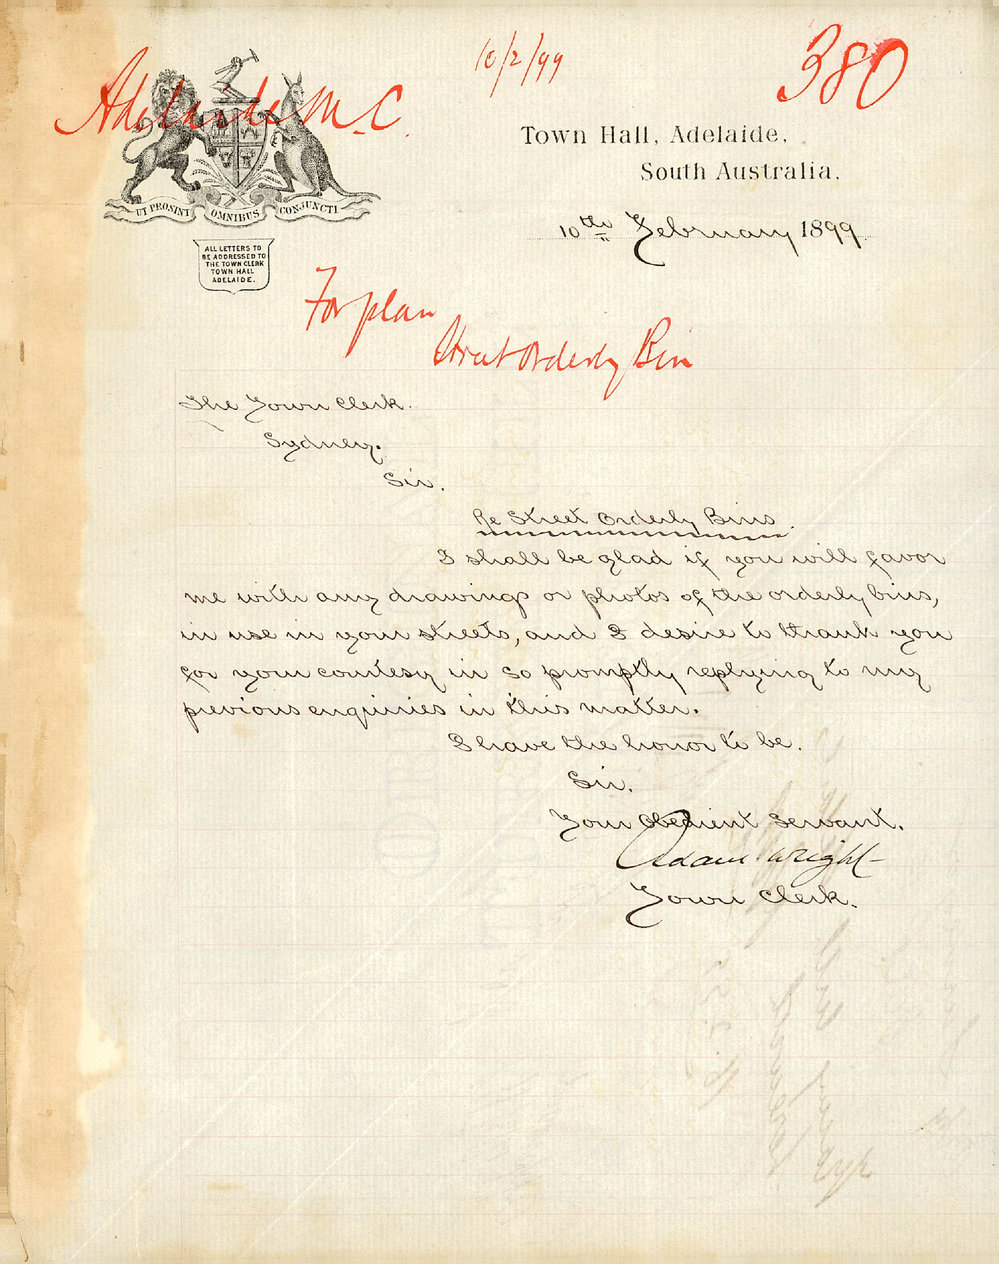 10/2/99
380
Adelaide M. C.
Town Hall, Adelaide,
South Australia,
UT PROSINT OMNIBUS CONJUNCTI
10th February 1899
ALL LETTERS TO
BE ADDRESSED TO
THE TOWN CLERK
TOWN HALL
ADELAIDE.
For plan
Street Orderly Bin
The Town Clerk.
Sydney.
Sir.
Re Street Orderly Bins.
I shall be glad if you will favor
me with any drawings or photos of the orderly bins,
in use in your streets, and I desire to thank you
for your courtesy in so promptly replying to my
previous enquiries in this matter.
I have the honor to be.
Sir.
Your Obedient Servant.
Adam Wright
Town Clerk.